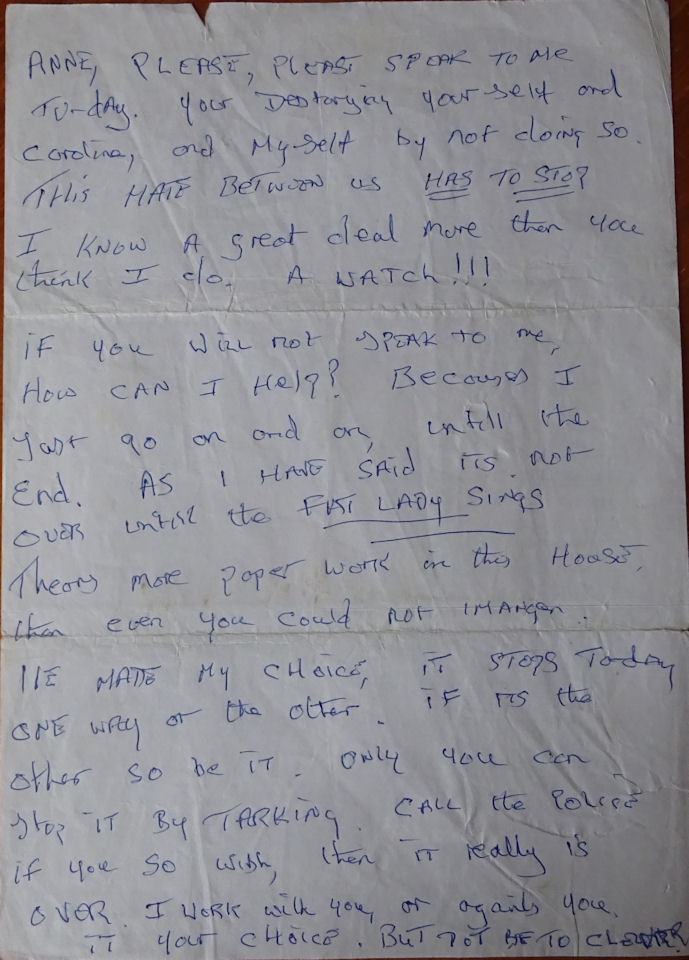 ANNE, PLEASE, PLEASE SPEAK TO ME
TO-day. Your Destorying your self and
Cordina, and My-self by not doing so.
THIS HATE BETWEEN us HAS TO STOP
I KNOW A great deal more then you
think I do. A WATCH!!!
iF you WILL not SPEAK to me,
How CAN I Help? Becouse I
Just go on and on, untill the
End. AS I HAVE SAID ITS not
OVER untill the FAT LADY Sings
Theors more paper work in this House,
then even you could not IMANGEN.
I'VE MADE My CHOICE, iT STOPS To-day
ONE WAY or the other. iF ITS the
other so be iT. ONLY you can
Stop iT By TARKING. CALL the Police
if you so wish, then iT really is
OVER. I WORK with you, or agants you.
IT your CHOICE. BUT NOT BE TO CLEVER?